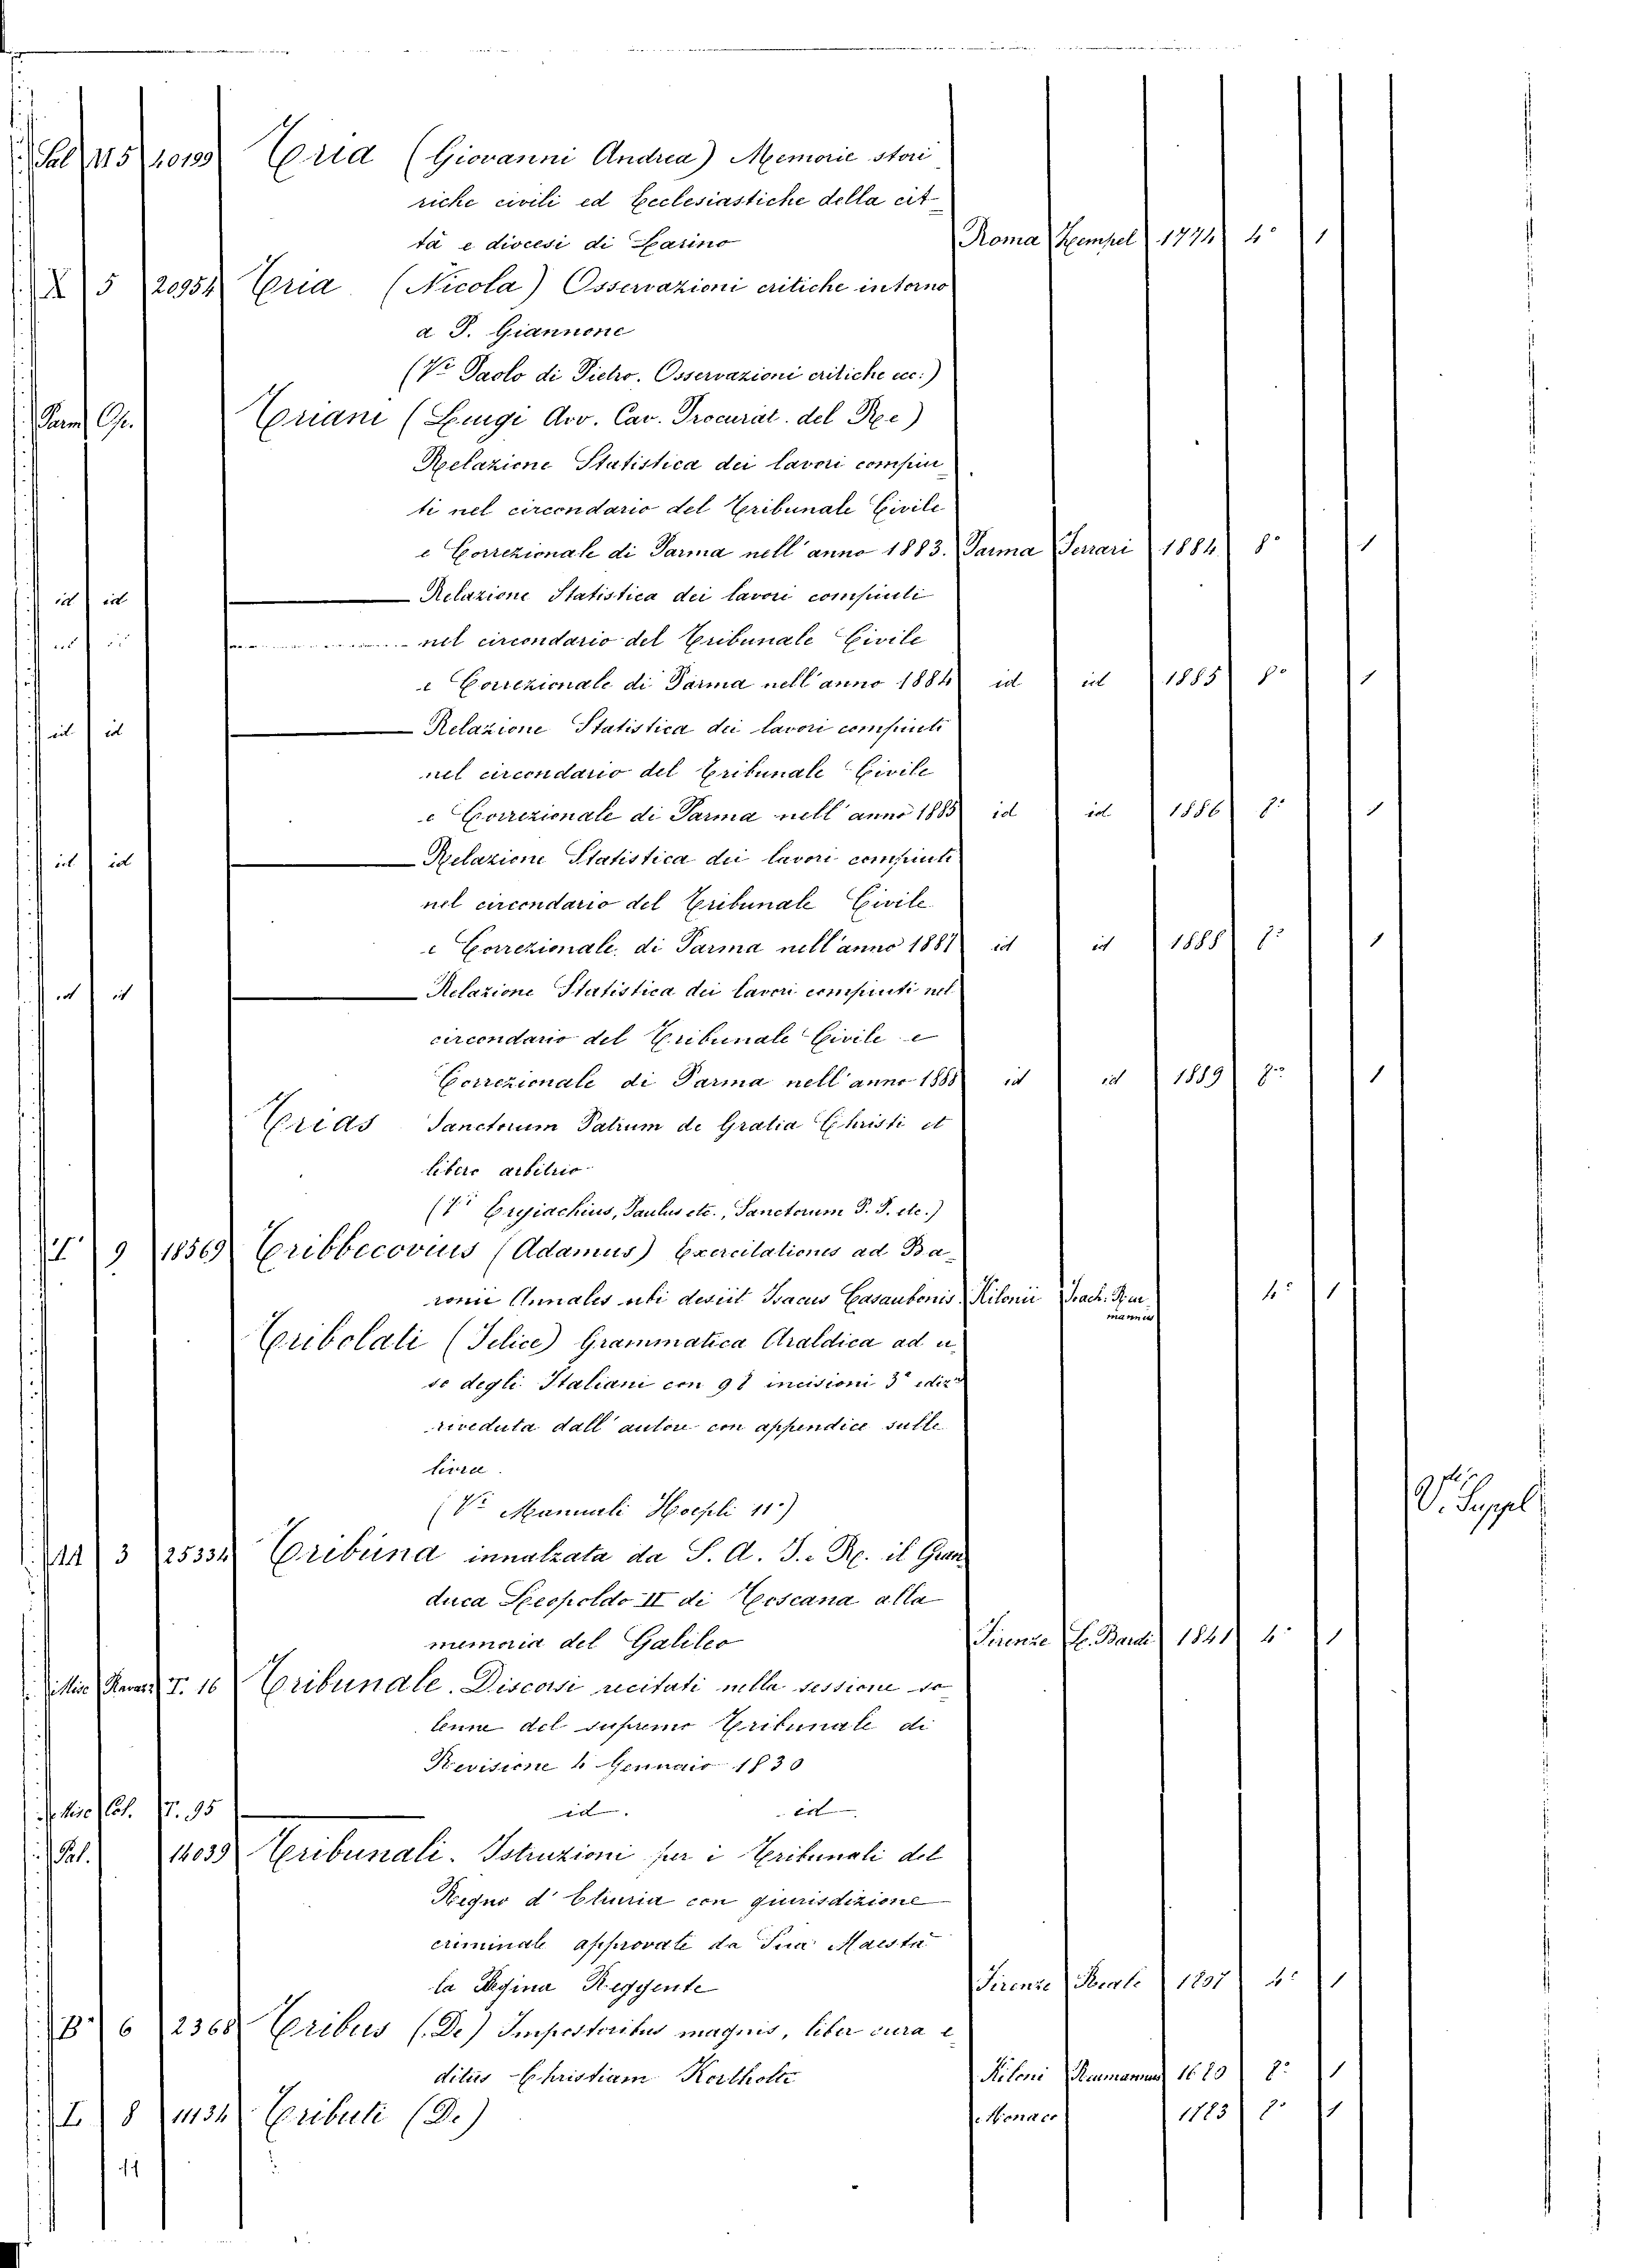 Sal 115 10199 Tria (Giovanni Andrea) Memorie stori
riche civili ed Ecclesiastiche della cit
tà e diocesi di Larino Roma Zempel 1774 4° 1
X 5 20954 Tria (Nicola) Osservazioni critiche intorno
a P. Giannone
(Vi Paolo di Pietro. Osservazioni critiche ecc:)
Parm Op. Triani (Luigi Avv. Cav. Procurat. del Re)
Relazione Statistica dei lavori compiu
ti nel circondario del Tribunale Civile
e Correzionale di Parma nell'anno 1883. Parma Ferrari 1884 8° 1
id id Relazione Statistica dei lavori compiuti
nel circondario del Tribunale Civile
e Correzionale di Parma nell'anno 1884 id id 1885 8° 1
id id Relazione Statistica dei lavori compiuti
nel circondario del Tribunale Civile
e Correzionale di Parma nell'anno 1885 id id 1886 8° 1
id id Relazione Statistica dei lavori compiuti
nel circondario del Tribunale Civile
e Correzionale di Parma nell'anno 1887 id id 1888 8° 1
id id Relazione Statistica dei lavori compiuti nel
circondario del Tribunale Civile e
Correzionale di Parma nell'anno 1888 id id 1889 8° 1
Trias Sanctorum Patrum de Gratia Christi et
libero arbitrio
(Vi Eryiachius, Paulus etc., Sanctorum P. P. etc.)
9 18569 Tribbecovius (Adamus) Exercitationes ad Ba
ronii Annales ubi desiit Isacus Casaubonis Kilonii Joach. Reu
mannus 4° 1
Tribolati (Felice) Grammatica Araldica ad u
so degli Italiani con 98 incisioni 3a ediz
riveduta dall'autore con appendice sulle
livree.
(Vi Manuali Hoepli 11°)
V. Suppl
AA 3 25334 Tribuna innalzata da S. A. I. e R. il Gran
duca Leopoldo II di Toscana alla
memoria del Galileo Firenze L. Bardi 1841 4° 1
Misc T. 16 Tribunale. Discorsi recitati nella sessione so
lenne del supremo Tribunale di
Revisione 4 Gennaio 1830
Misc Col. T. 95 id. id.
Pal. 14039 Tribunali. Istruzioni per i Tribunali del
Regno d'Etruria con giurisdizione
criminale approvate da Sua Maestà
la Regina Reggente Firenze Reale 1807 4° 1
B 6 2368 Tribus (De) Impostoribus magnis, liber cura e
ditus Christiani Kortholti Kiloni Reumannus 1680 8° 1
I 8 11134 Tributi (De) Monaco 1783 8° 1
11